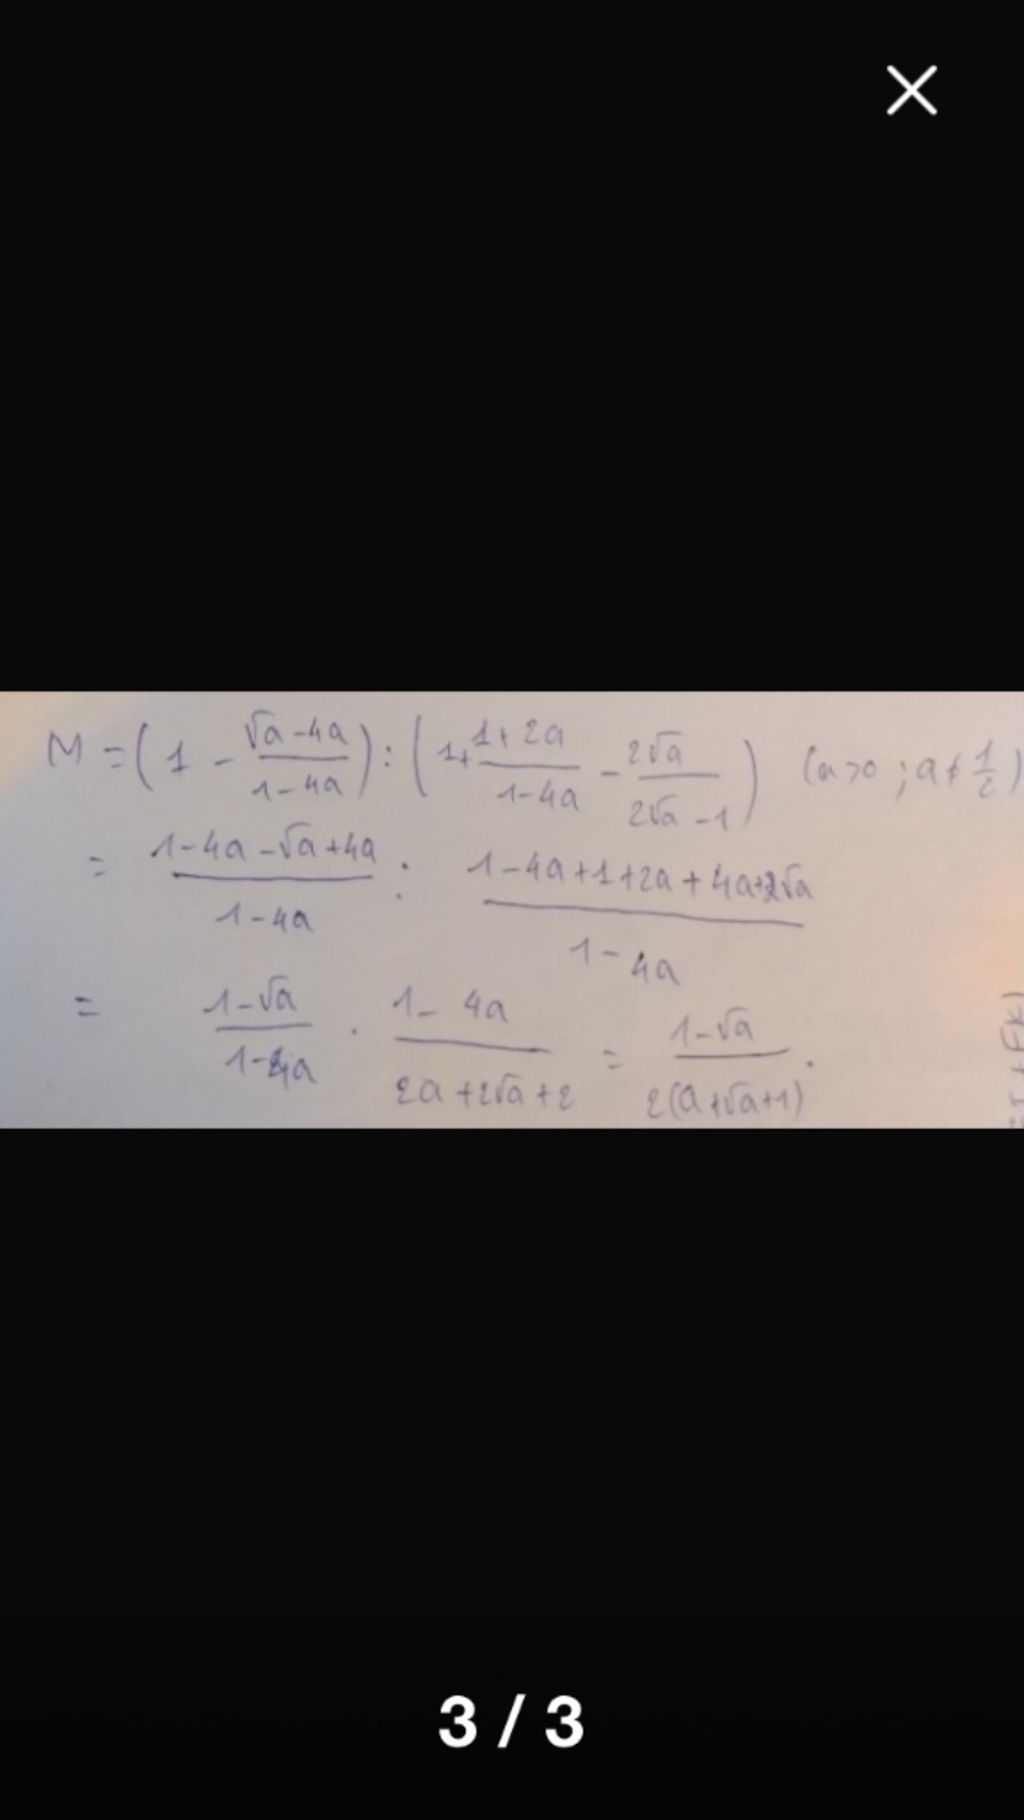 M = (1 - (√a - 4a)/(1 - 4a)) : (1 + (1 + 2a)/(1 - 4a) - 2√a/(2√a - 1)) (a > 0 ; a ≠ 1/2)
= (1 - 4a - √a + 4a)/(1 - 4a) : (1 - 4a + 1 + 2a + 4a + 2√a)/(1 - 4a)
= (1 - √a)/(1 - 4a) · (1 - 4a)/(2a + 2√a + 2) = (1 - √a)/(2(a + √a + 1)).
3 / 3